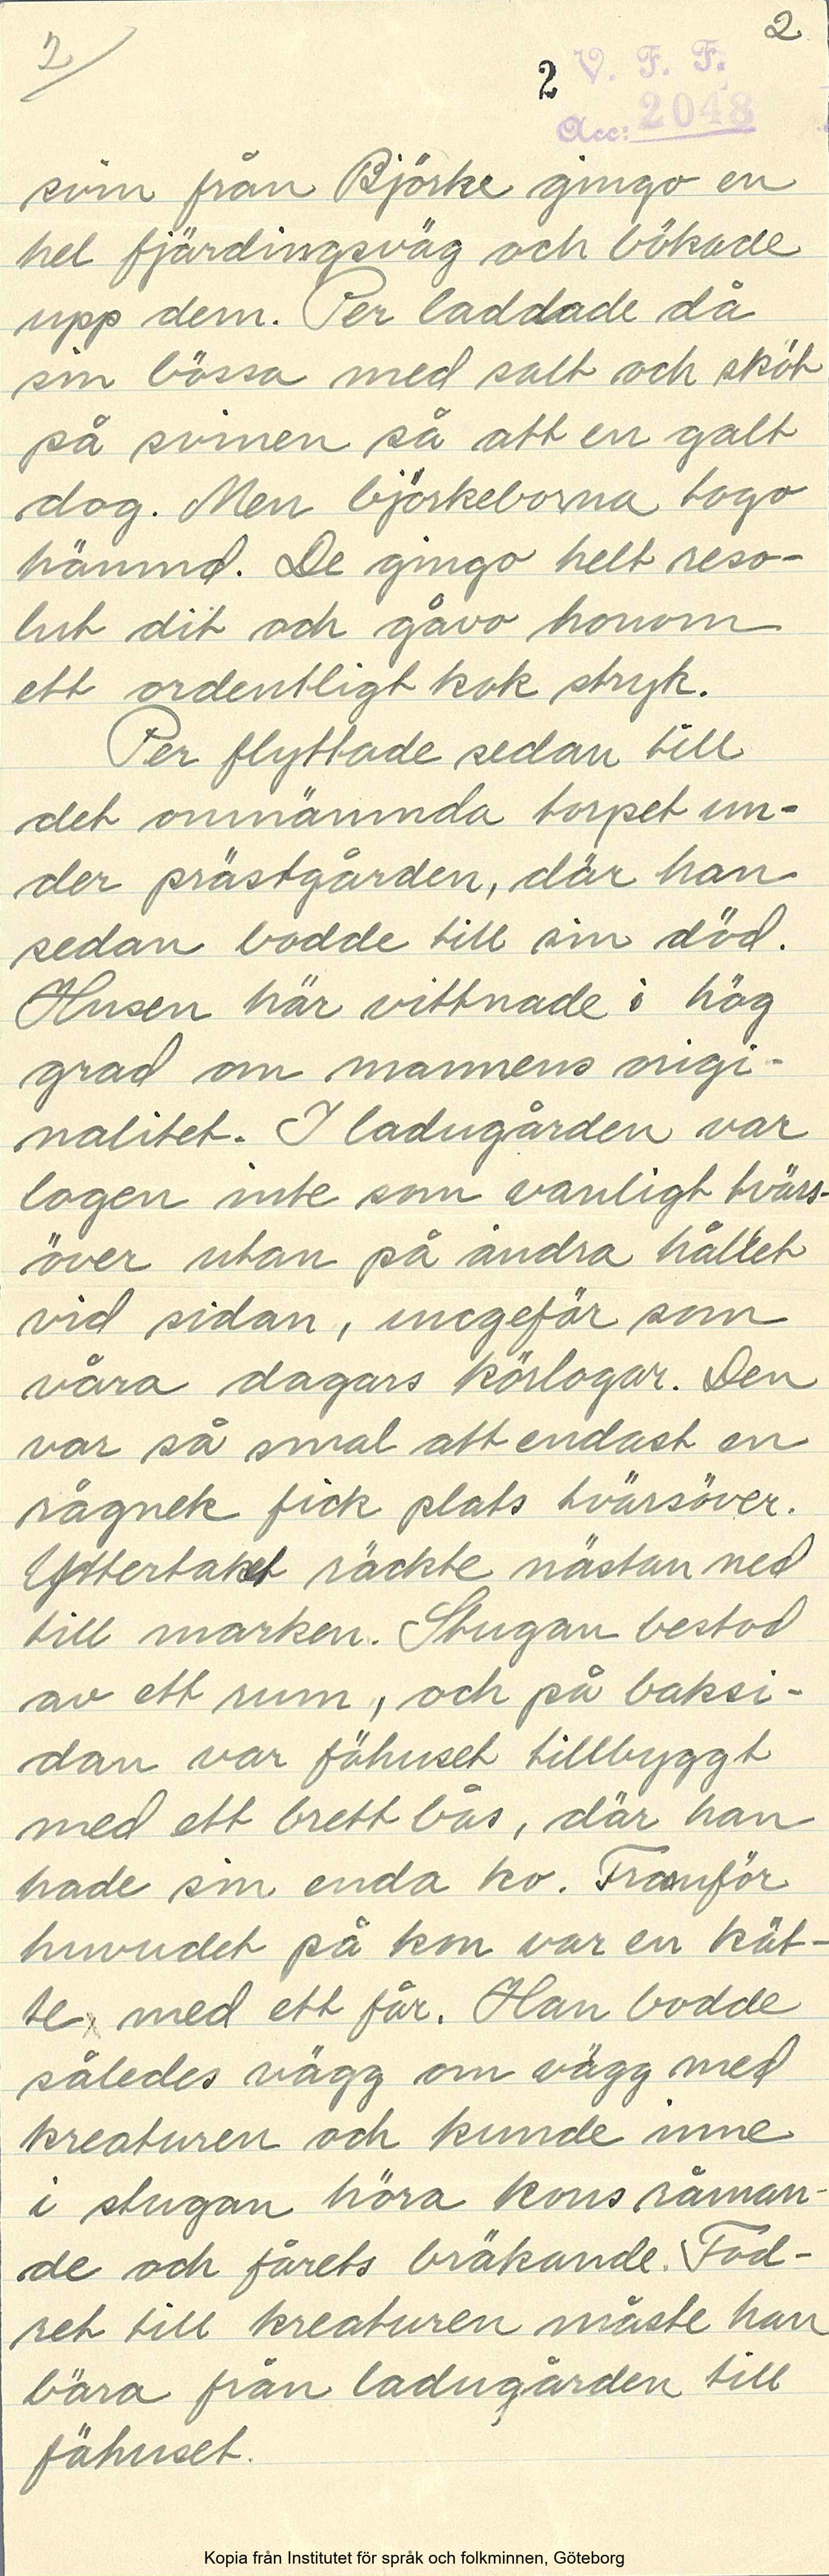 2/
2
2 V. F. F.
Acc: 2048
svin från Björke gingo en
hel fjärdingsväg och bökade
upp dem. Per laddade då
sin bössa med salt och sköt
på svinen så att en galt
dog. Men björkeborna togo
hämnd. De gingo helt reso-
lut dit och gåvo honom
ett ordentligt kok stryk.
Per flyttade sedan till
det omnämnda torpet un-
der prästgården, där han
sedan bodde till sin död.
Husen här vittnade i hög
grad om mannens origi-
nalitet. I ladugården var
logen inte som vanligt tvärs-
över utan på andra hållet
vid sidan, ungefär som
våra dagars körlogar. Den
var så smal att endast en
rågnek fick plats tvärsöver.
Yttertaket räckte nästan ned
till marken. Stugan bestod
av ett rum, och på baksi-
dan var fähuset tillbyggt
med ett brett bås, där han
hade sin enda ko. Framför
huvudet på kon var en kät-
te med ett får. Han bodde
således vägg om vägg med
kreaturen och kunde inne
i stugan höra kons råman-
de och fårets bräkande. Fod-
ret till kreaturen måste han
bära från ladugården till
fähuset.
Kopia från Institutet för språk och folkminnen, Göteborg